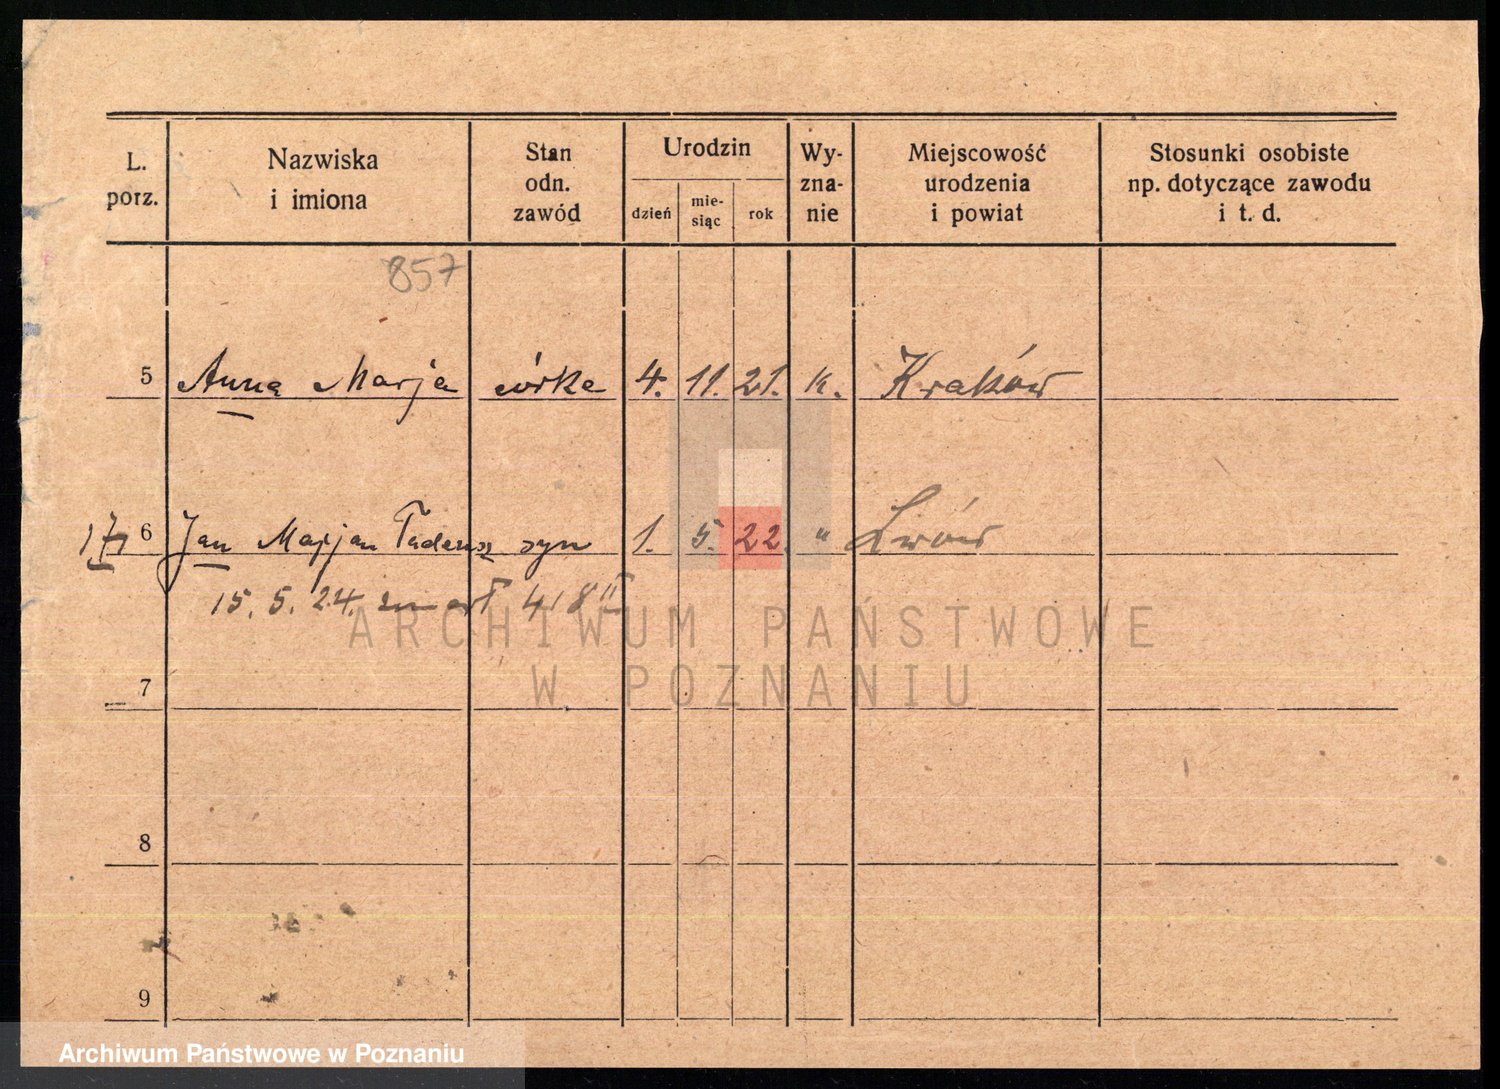 L. porz. Nazwiska i imiona Stan odn. zawód Urodzin dzień mie- siąc rok Wy- zna- nie Miejscowość urodzenia i powiat Stosunki osobiste np. dotyczące zawodu i t. d.
857
5 Anna Marja córka 4. 11. 21. k. Kraków
6 Jan Marjan Tadeusz syn 1. 5. 22. " Lwów
15. 5. 24. zmarł 418
ARCHIWUM PAŃSTWOWE
W POZNANIU
7
8
9
Archiwum Państwowe w Poznaniu